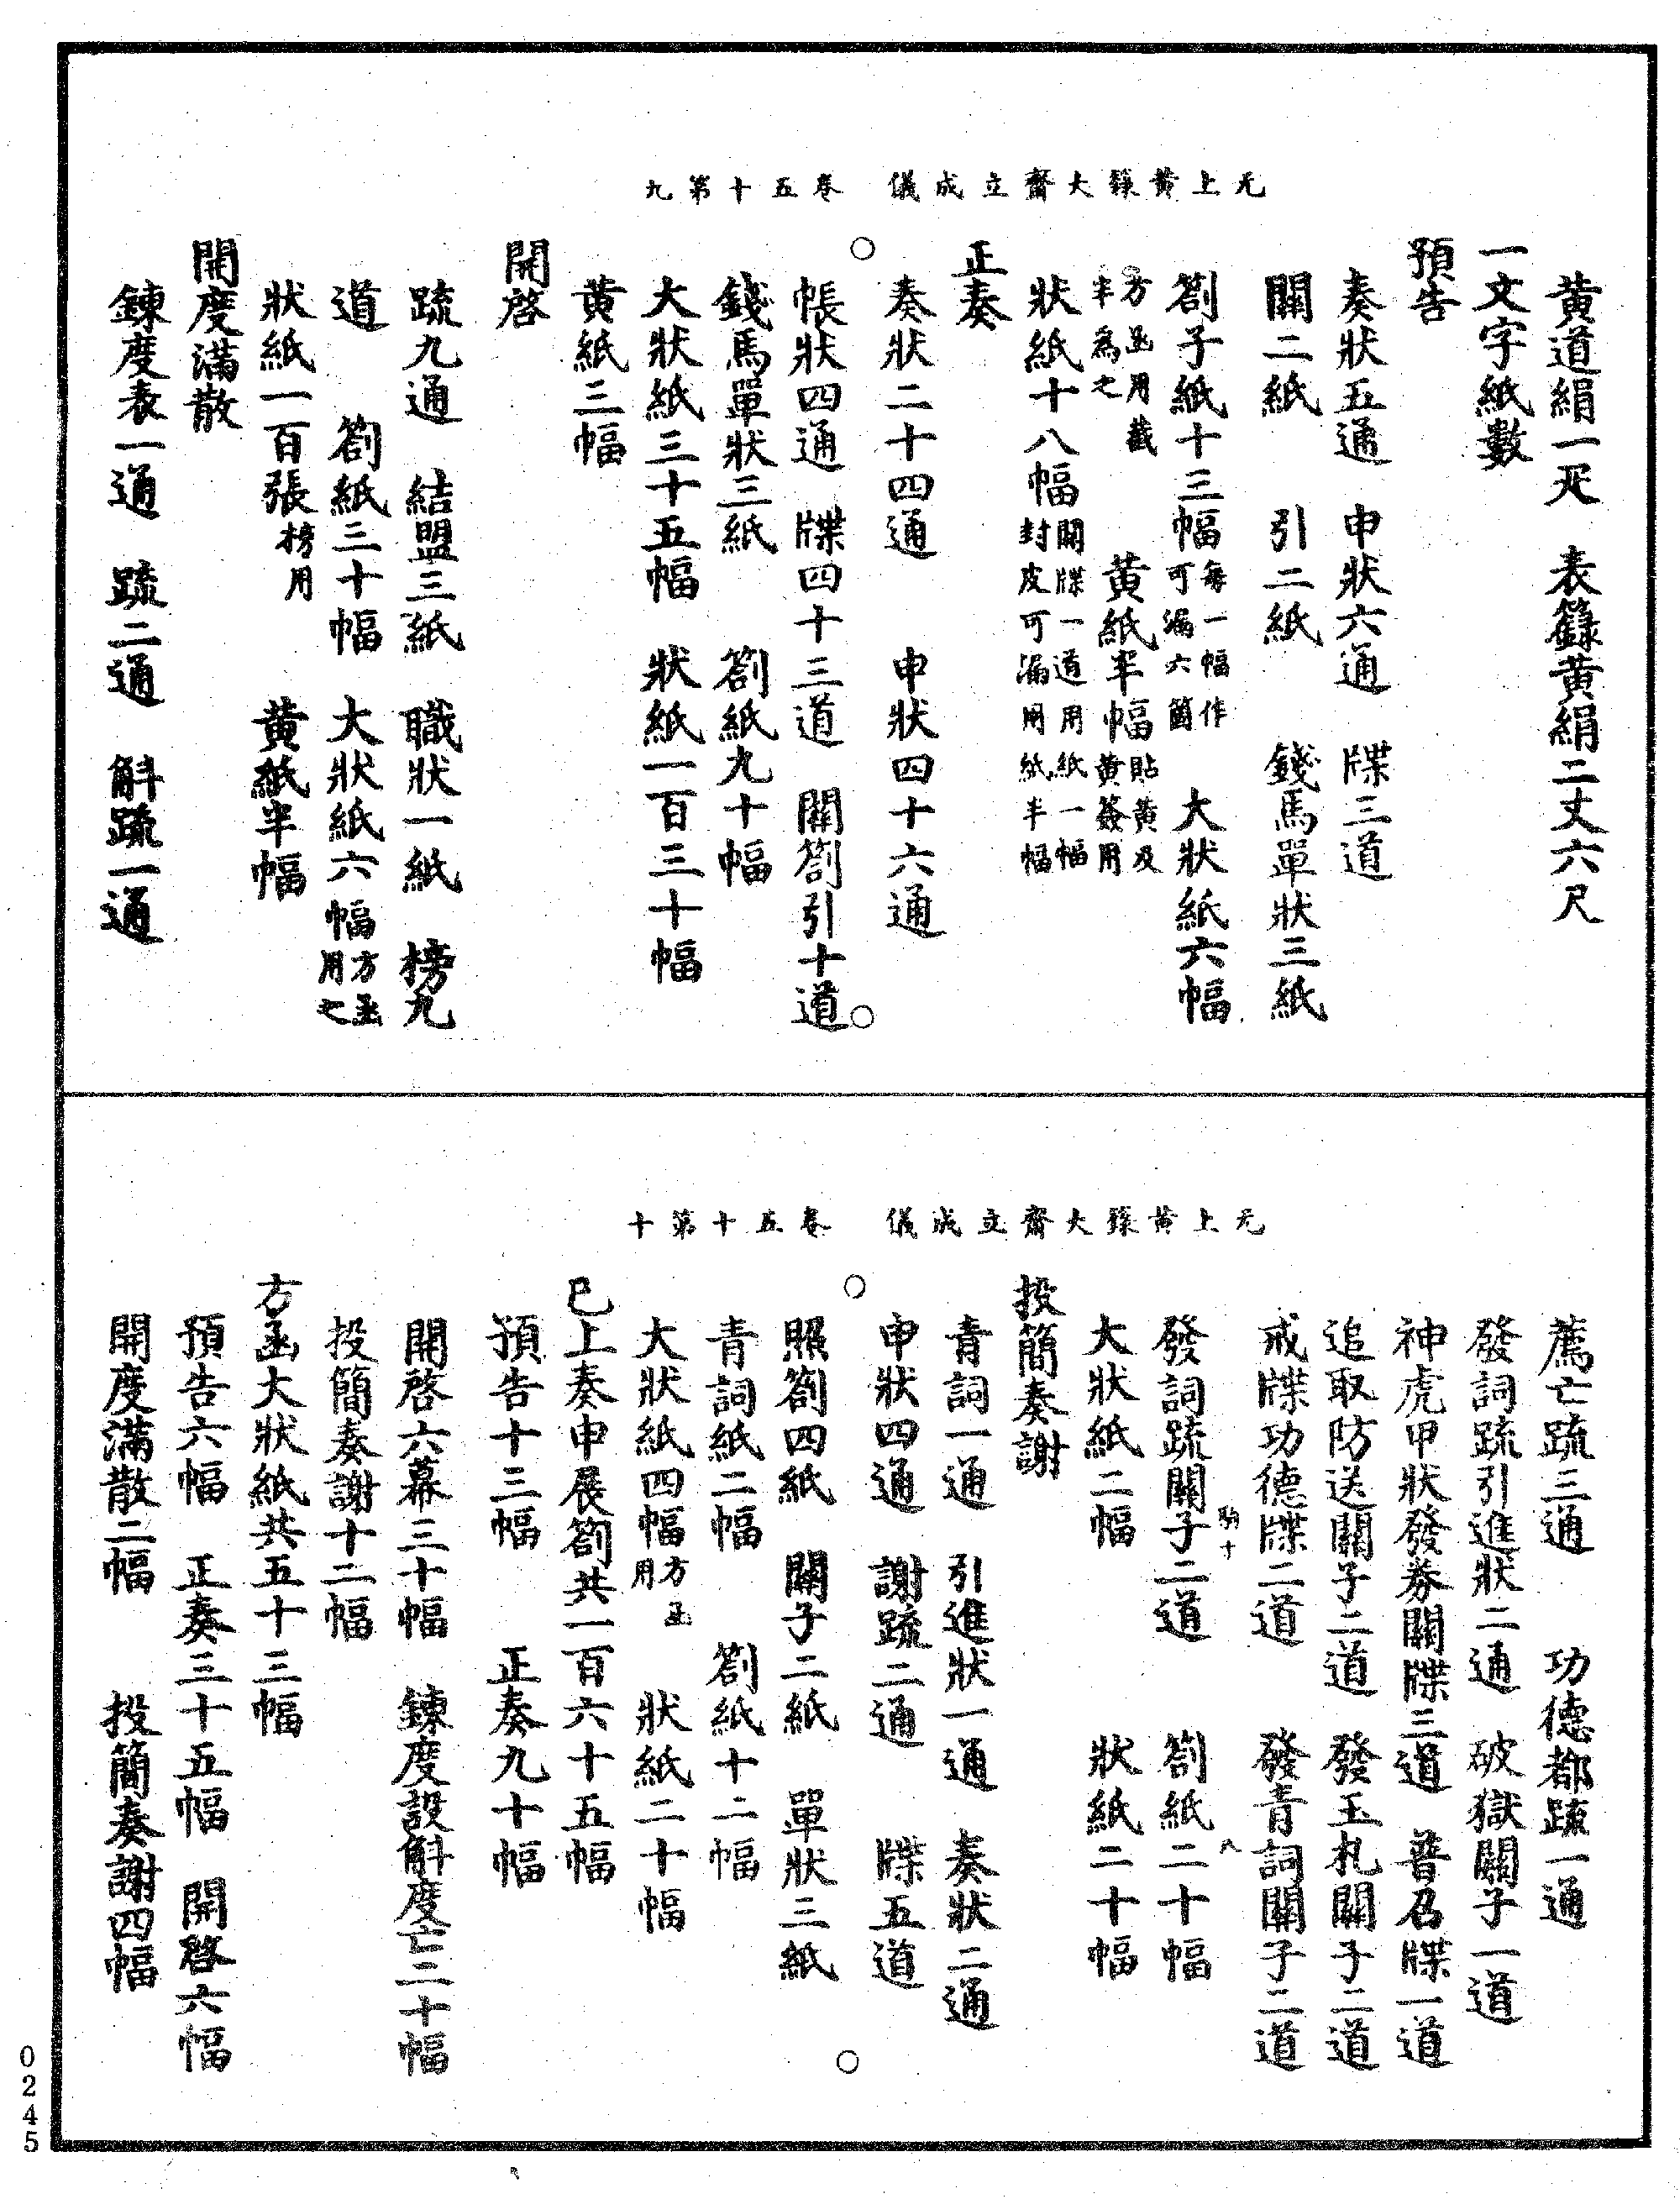 无上黃籙大齋立成儀　卷五十第九
黃道絹一疋　表籙黃絹二丈六尺
一文字紙數
預告
奏狀五通　申狀六通　牒三道
關二紙　引二紙　錢馬單狀三紙
劄子紙十三幅每一幅作可漏六箇　大狀紙六幅
方函用截半為之　黃紙半幅貼黃及黃簽用
狀紙十八幅關牒一道用紙一幅封皮可漏用紙半幅
正奏
奏狀二十四通　申狀四十六通
帳狀四通　牒四十三道　關劄引十道
錢馬單狀三紙　劄紙九十幅
大狀紙三十五幅　狀紙一百三十幅
黃紙三幅
開啓
䟽九通　結盟三紙　職狀一紙　榜九
道　劄紙三十幅　大狀紙六幅方函用之
狀紙一百張榜用　黃紙半幅
開度滿散
鍊度表一通　䟽二通　斛䟽一通
无上黃籙大齋立成儀　卷五十第十
薦亡䟽三通　功德都䟽一通
發詞䟽引進狀二通　破獄關子一道
神虎甲狀發券關牒三道　普召牒一道
追取防送關子二道　發玉札關子二道
戒牒功德牒二道　發青詞關子二道
發詞䟽關子二道　劄紙二十幅
大狀紙二幅　狀紙二十幅
投簡奏謝
青詞一通　引進狀一通　奏狀二通
申狀四通　謝䟽二通　牒五道
照劄四紙　關子二紙　單狀三紙
青詞紙二幅　劄紙十二幅
大狀紙四幅方函用　狀紙二十幅
已上奏申展劄共一百六十五幅
預告十三幅　正奏九十幅
開啓六幕三十幅　鍊度設斛度亡二十幅
投簡奏謝十二幅
方函大狀紙共五十三幅
預告六幅　正奏三十五幅　開啓六幅
開度滿散二幅　投簡奏謝四幅
0245